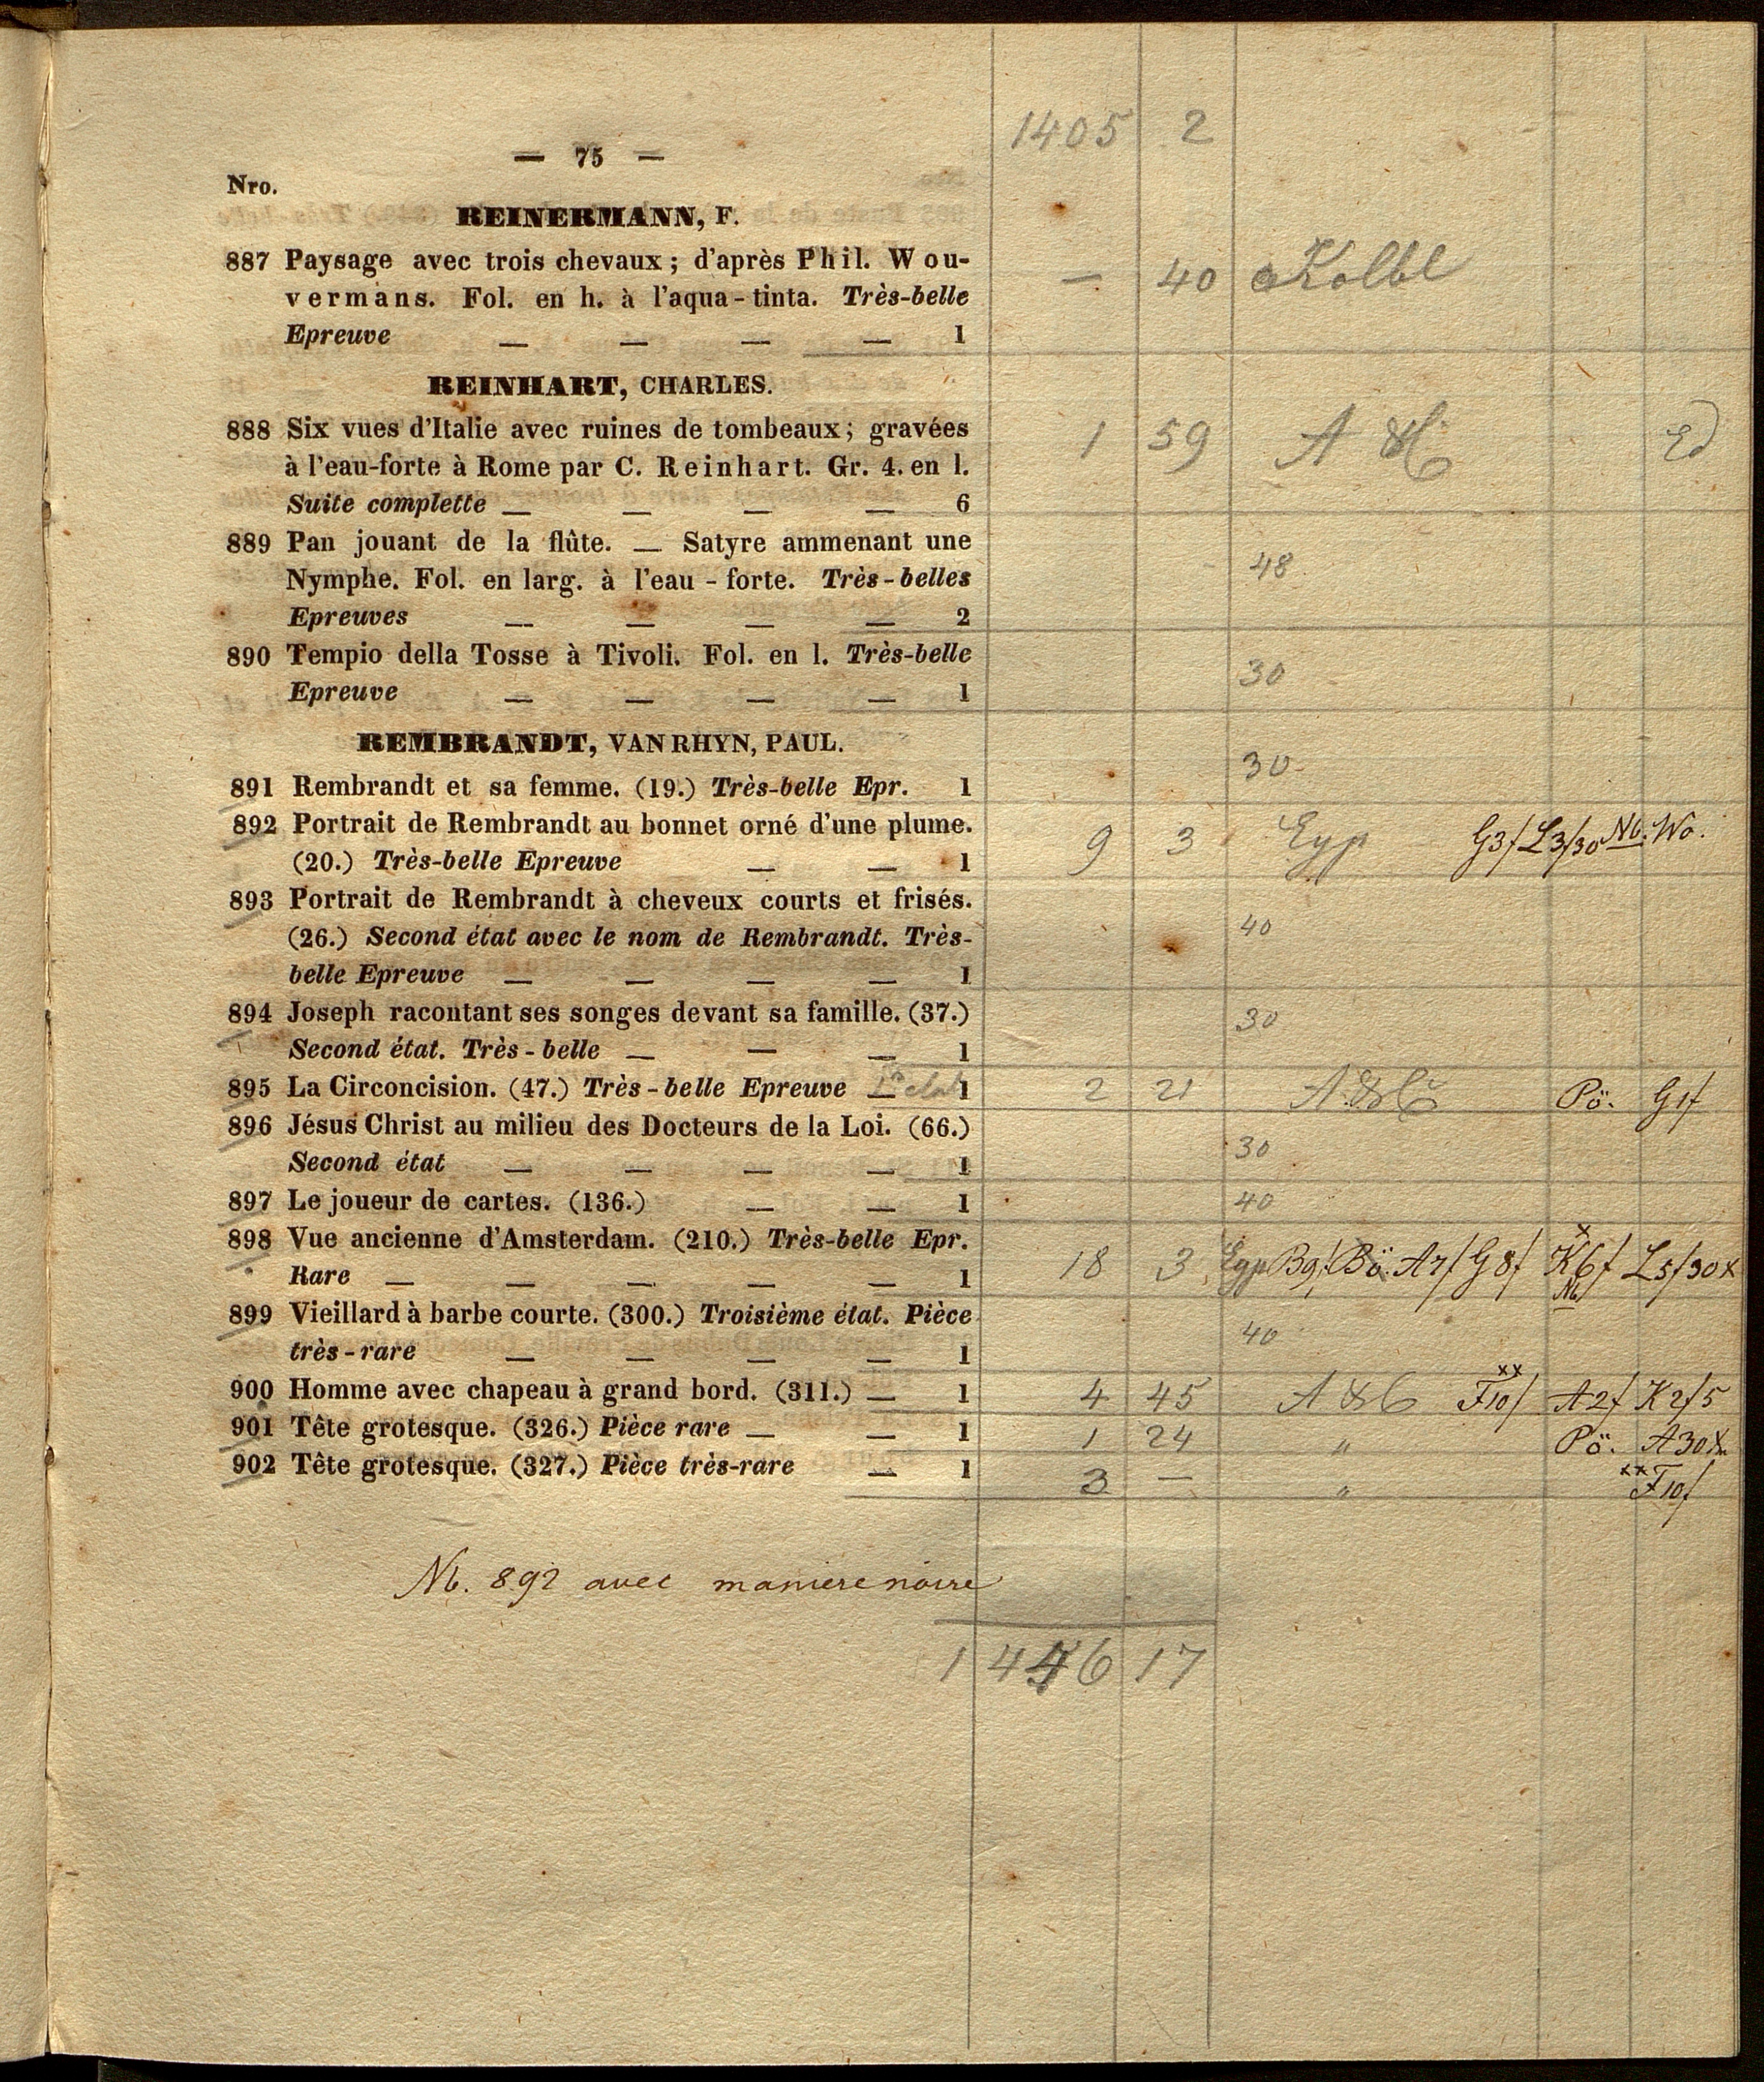 1405 2
— 75 —
Nro.
REINERMANN, F.
887 Paysage avec trois chevaux; d'après Phil. Wou-
vermans. Fol. en h. à l'aqua-tinta. Très-belle
Epreuve — — — — 1
— 40 Kolbl
REINHART, CHARLES.
888 Six vues d'Italie avec ruines de tombeaux; gravées
à l'eau-forte à Rome par C. Reinhart. Gr. 4. en l.
Suite complette — — — — 6
1 59 A
889 Pan jouant de la flûte. — Satyre ammenant une
Nymphe. Fol. en larg. à l'eau-forte. Très-belles
Epreuves — — — — 2
48
890 Tempio della Tosse à Tivoli. Fol. en l. Très-belle
Epreuve — — — — 1
30
REMBRANDT, VAN RHYN, PAUL.
891 Rembrandt et sa femme. (19.) Très-belle Epr. 1
30
892 Portrait de Rembrandt au bonnet orné d'une plume.
(20.) Très-belle Epreuve — — 1
9 3 Eyp G3f L3f30 Nb. Wo.
893 Portrait de Rembrandt à cheveux courts et frisés.
(26.) Second état avec le nom de Rembrandt. Très-
belle Epreuve — — — — 1
40
894 Joseph racontant ses songes devant sa famille. (37.)
Second état. Très-belle — — — 1
30
895 La Circoncision. (47.) Très-belle Epreuve — 1
2 21 Pö. G1f
896 Jésus Christ au milieu des Docteurs de la Loi. (66.)
Second état — — — — 1
30
897 Le joueur de cartes. (136.) — — 1
40
898 Vue ancienne d'Amsterdam. (210.) Très-belle Epr.
Rare — — — — — 1
18 3 Eyp B9f Bö. A7f G8f K6f L5f30x
Nb
899 Vieillard à barbe courte. (300.) Troisième état. Pièce
très-rare — — — — 1
40
900 Homme avec chapeau à grand bord. (311.) — 1
4 45 xx F10f A2f K2f5
901 Tête grotesque. (326.) Pièce rare — — 1
1 24 " Pö. A30x
902 Tête grotesque. (327.) Pièce très-rare — 1
3 — " xx F10f
Nb. 892 avec maniere noire
1446 17